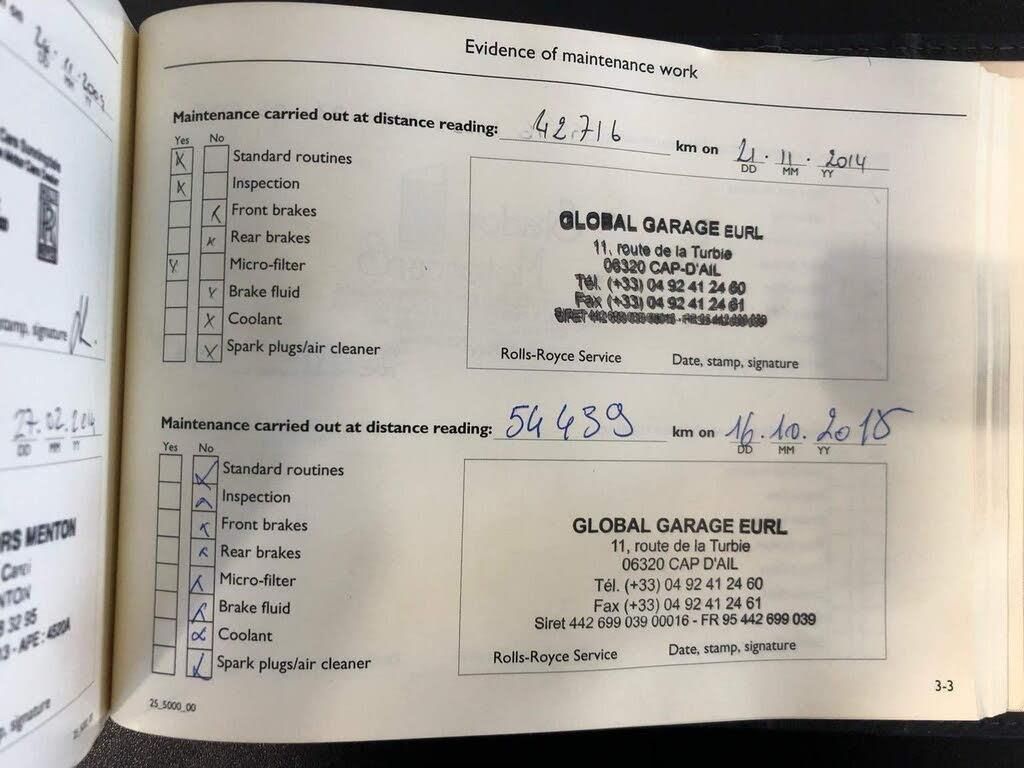 24. 11. 200
DD MM YY
stamp, signature
27. 02. 2014
DD MM YY
RS MENTON
NTON
3 32 95
3 - APE : 4520A
signature
Evidence of maintenance work
Maintenance carried out at distance reading: 42.716 km on 21. 11. 2014
DD MM YY
Yes No
Standard routines
Inspection
Front brakes
Rear brakes
Micro-filter
Brake fluid
Coolant
Spark plugs/air cleaner
GLOBAL GARAGE EURL
11, route de la Turbie
06320 CAP-D'AIL
Tél. (+33) 04 92 41 24 60
Fax (+33) 04 92 41 24 61
SIRET 442 699 039 00016 - FR 95 442 699 039
Rolls-Royce Service Date, stamp, signature
Maintenance carried out at distance reading: 54439 km on 16.10. 2018
DD MM YY
Yes No
Standard routines
Inspection
Front brakes
Rear brakes
Micro-filter
Brake fluid
Coolant
Spark plugs/air cleaner
GLOBAL GARAGE EURL
11, route de la Turbie
06320 CAP D'AIL
Tél. (+33) 04 92 41 24 60
Fax (+33) 04 92 41 24 61
Siret 442 699 039 00016 - FR 95 442 699 039
Rolls-Royce Service Date, stamp, signature
25_5000_00
3-3